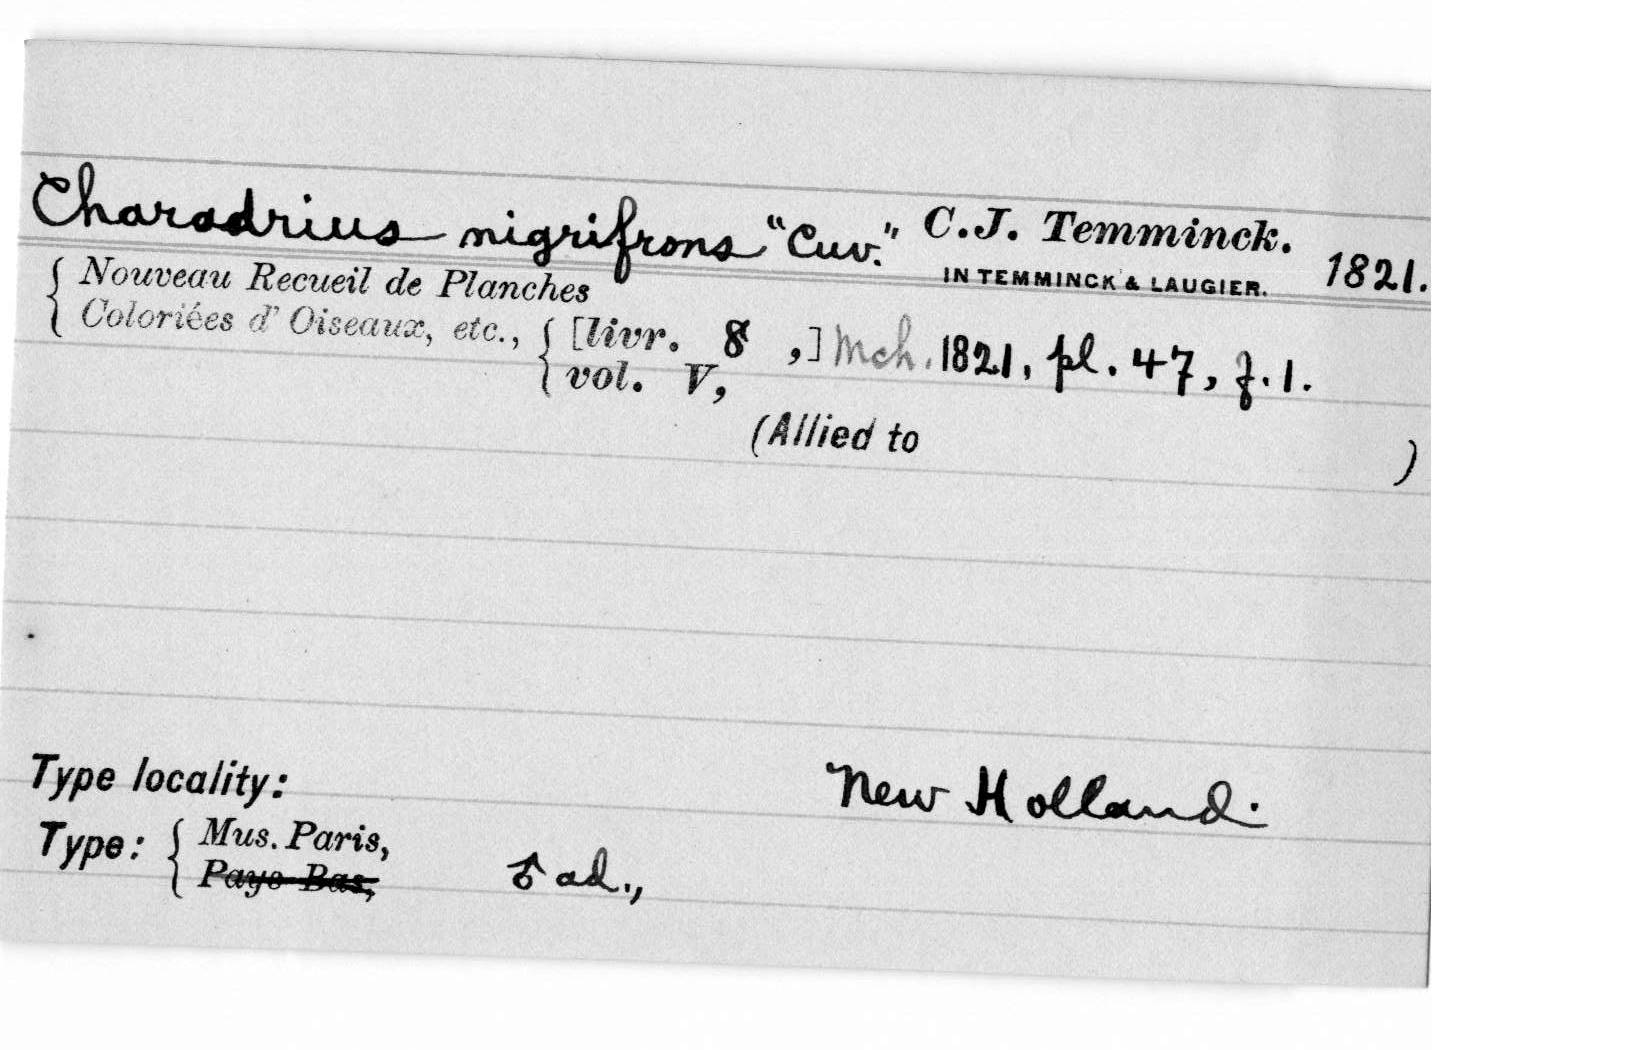 Charadrius nigrifrons "Cuv." C.J. Temminck. 1821.
IN TEMMINCK & LAUGIER.
{ Nouveau Recueil de Planches
Coloriées d' Oiseaux, etc., { [livr. 8 ,] Mch. 1821, pl. 47, f. 1.
vol. V,
(Allied to )
Type locality: New Holland.
Type: { Mus. Paris, ♂ ad.,
Pays-Bas,